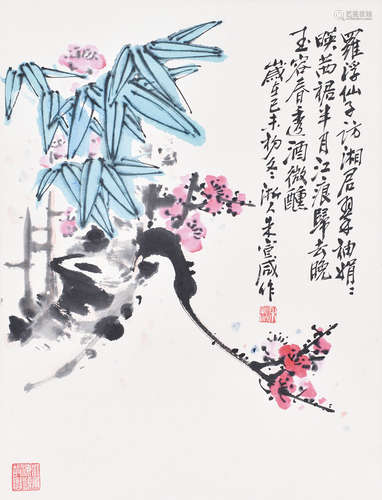 羅浮仙子訪湘君翠袖娟〻
暎茜裙半月江浪歸去晚
玉容春透酒微醺
歲在己未初冬浙人朱宣咸作